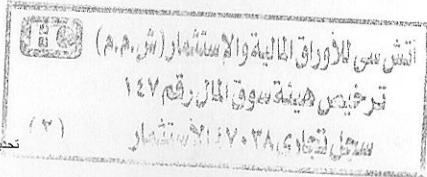 اتش سى للأوراق المالية والإستثمار (ش.م.م)
ترخيص هيئة سوق المال رقم ١٤٧
سجل تجارى ١٤٧٠٣٨ الأستثمار
(٣)